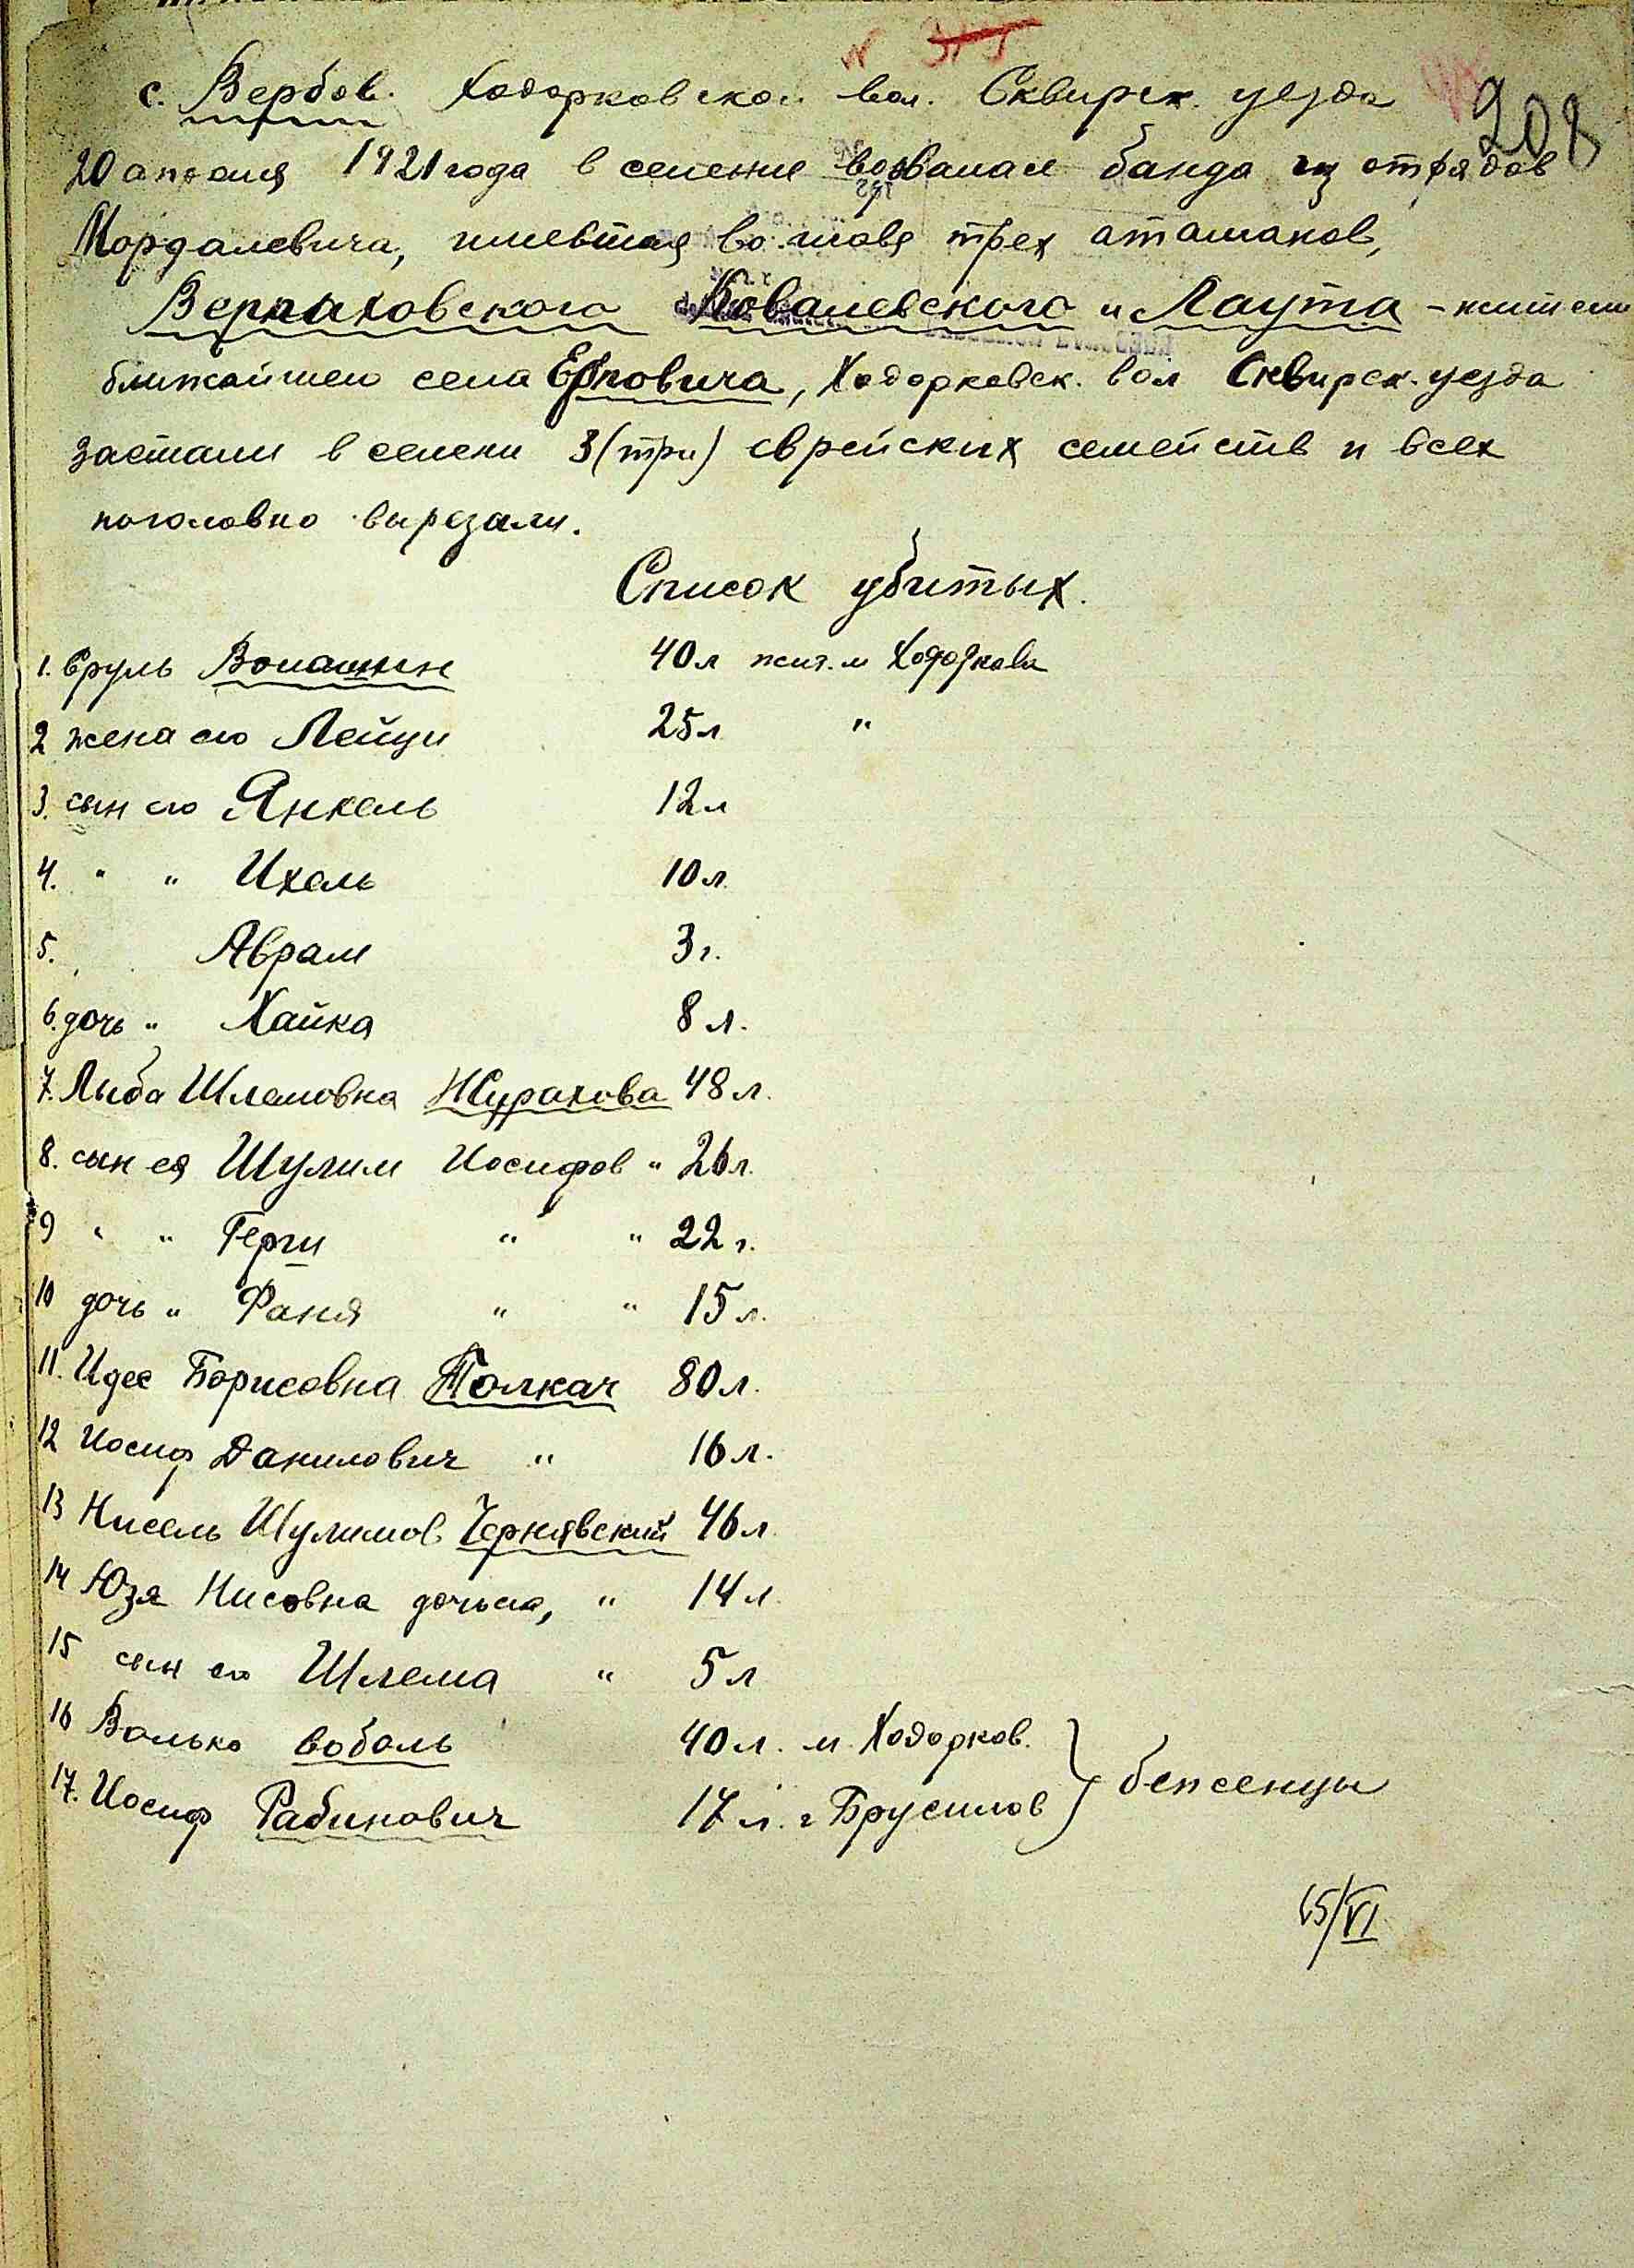 208
с. Вербов. Ходорковской вол. Сквирск. уезда
20 апреля 1921 года в селение ворвалась банда из отрядов
Мордалевича, имевшая во главе трех атаманов,
Ковалевского и Лаута - жители
ближайшего села, Ходорковск. вол Сквирск. уезда
застали в селени 3 (три) еврейских семейств и всех
поголовно вырезали.
Список убитых.
1. Сруль 40 л жит. м Ходоркова
2 жена его Лейци 25 л "
3. сын его Янкель 12 л
4. " " Ихель 10 л.
5. Аврам 3 г.
6. дочь " Хайка 8 л.
7. Лыба Шлемовна Журахова 48 л.
8. сын ея Шулим Иосифов " 26 л.
9 " " " " 22 г.
10 дочь " Фаня " " 15 л.
11. Идес Борисовна Толкач 80 л.
12 Иосиф Данилович " 16 л.
13 Нисель Шулимов Чернявский 46 л.
14 Юзя Нисовна дочь его, " 14 л.
15 сын его Шлема " 5 л
16 Волько Соболь 40 л. м. Ходорков.
17. Иосиф Рабинович 17 л. г Брусилов } беженцы
15/VI